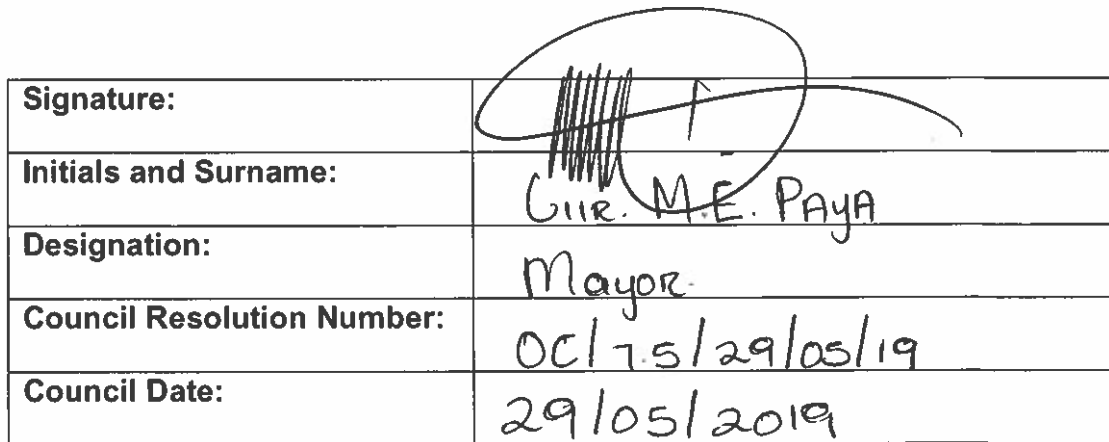 Signature:
Initials and Surname: Cllr. M.E. PAYA
Designation: Mayor
Council Resolution Number: OC/7.5/29/05/19
Council Date: 29/05/2019